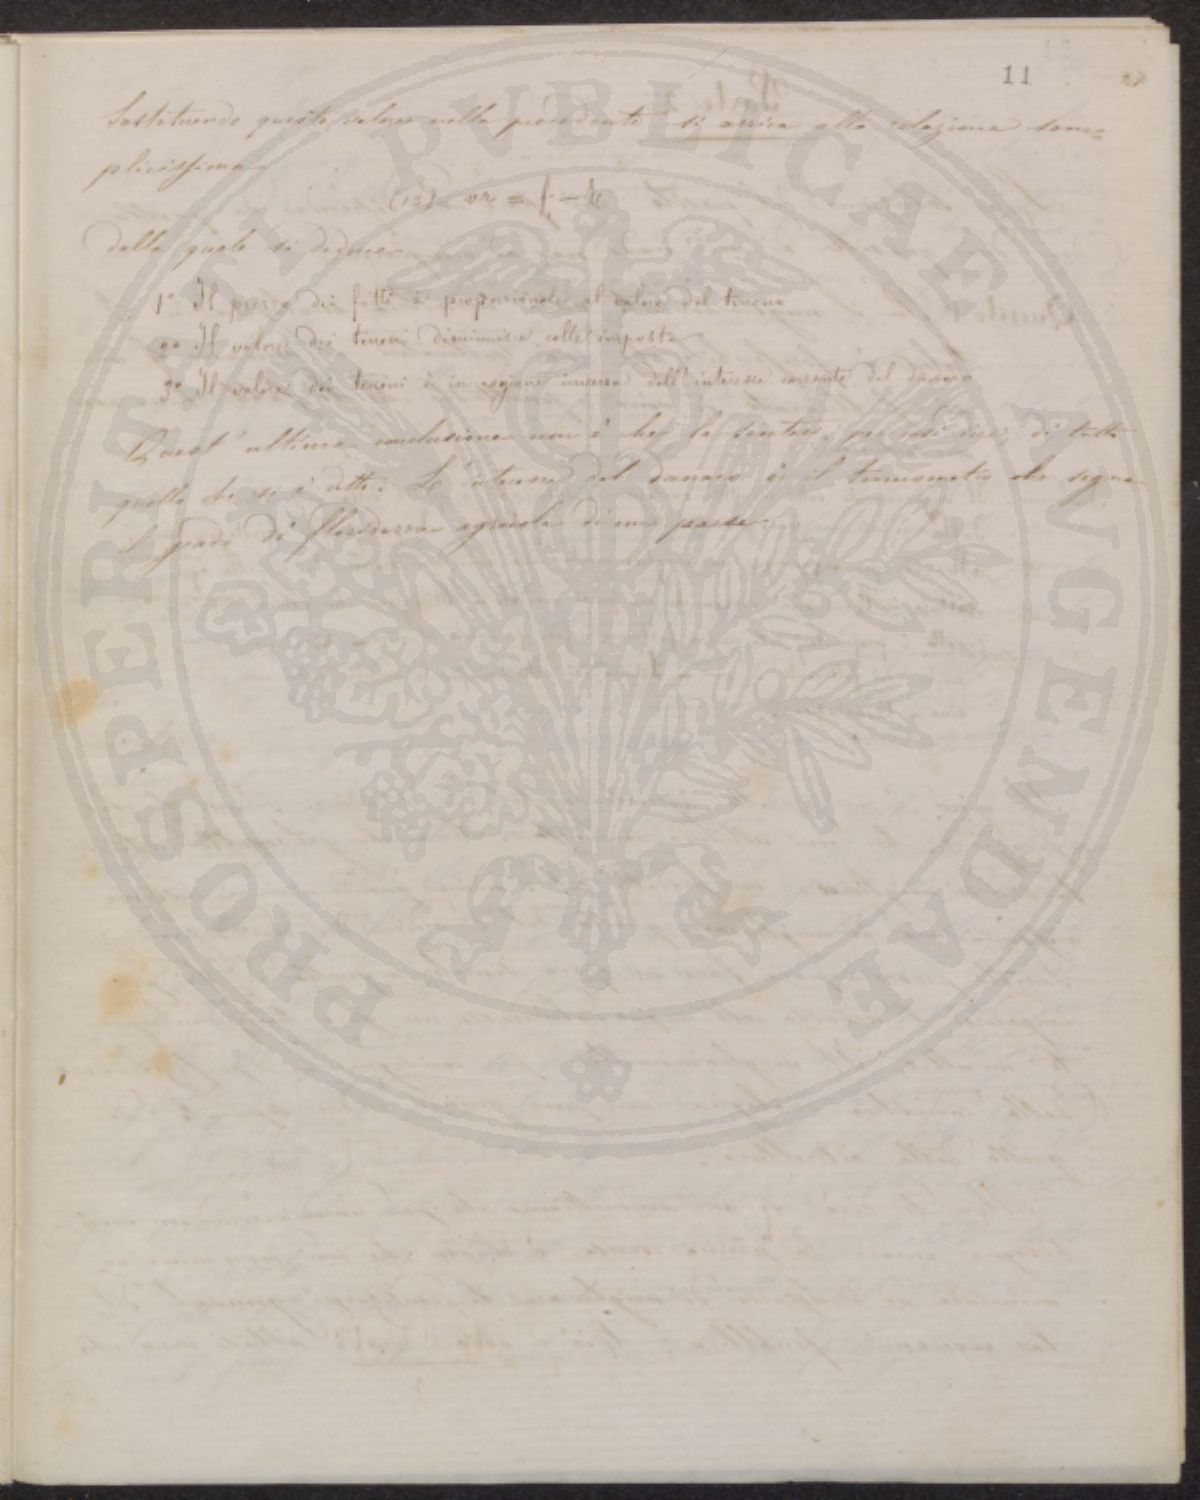 11
Sostituendo questo valore nella precedente si arriva alla relazione sem=
plicissima
(13) vr = f - h
dalla quale si deduce
1º Il prezzo dei fitti è proporzionale al valore del terreno
2º Il valore dei terreni diminuisce colle imposte
3º Il valore dei terreni è in ragione inversa dell'interesse corrente del danaro
Quest'ultima conclusione non è che la sintesi, per così dire, di tutto
quello che si è detto. L'interesse del danaro è il termometro che segna
i gradi di floridezza agricola di un paese.
PROSPERITATI PVBLICAE AVGENDAE